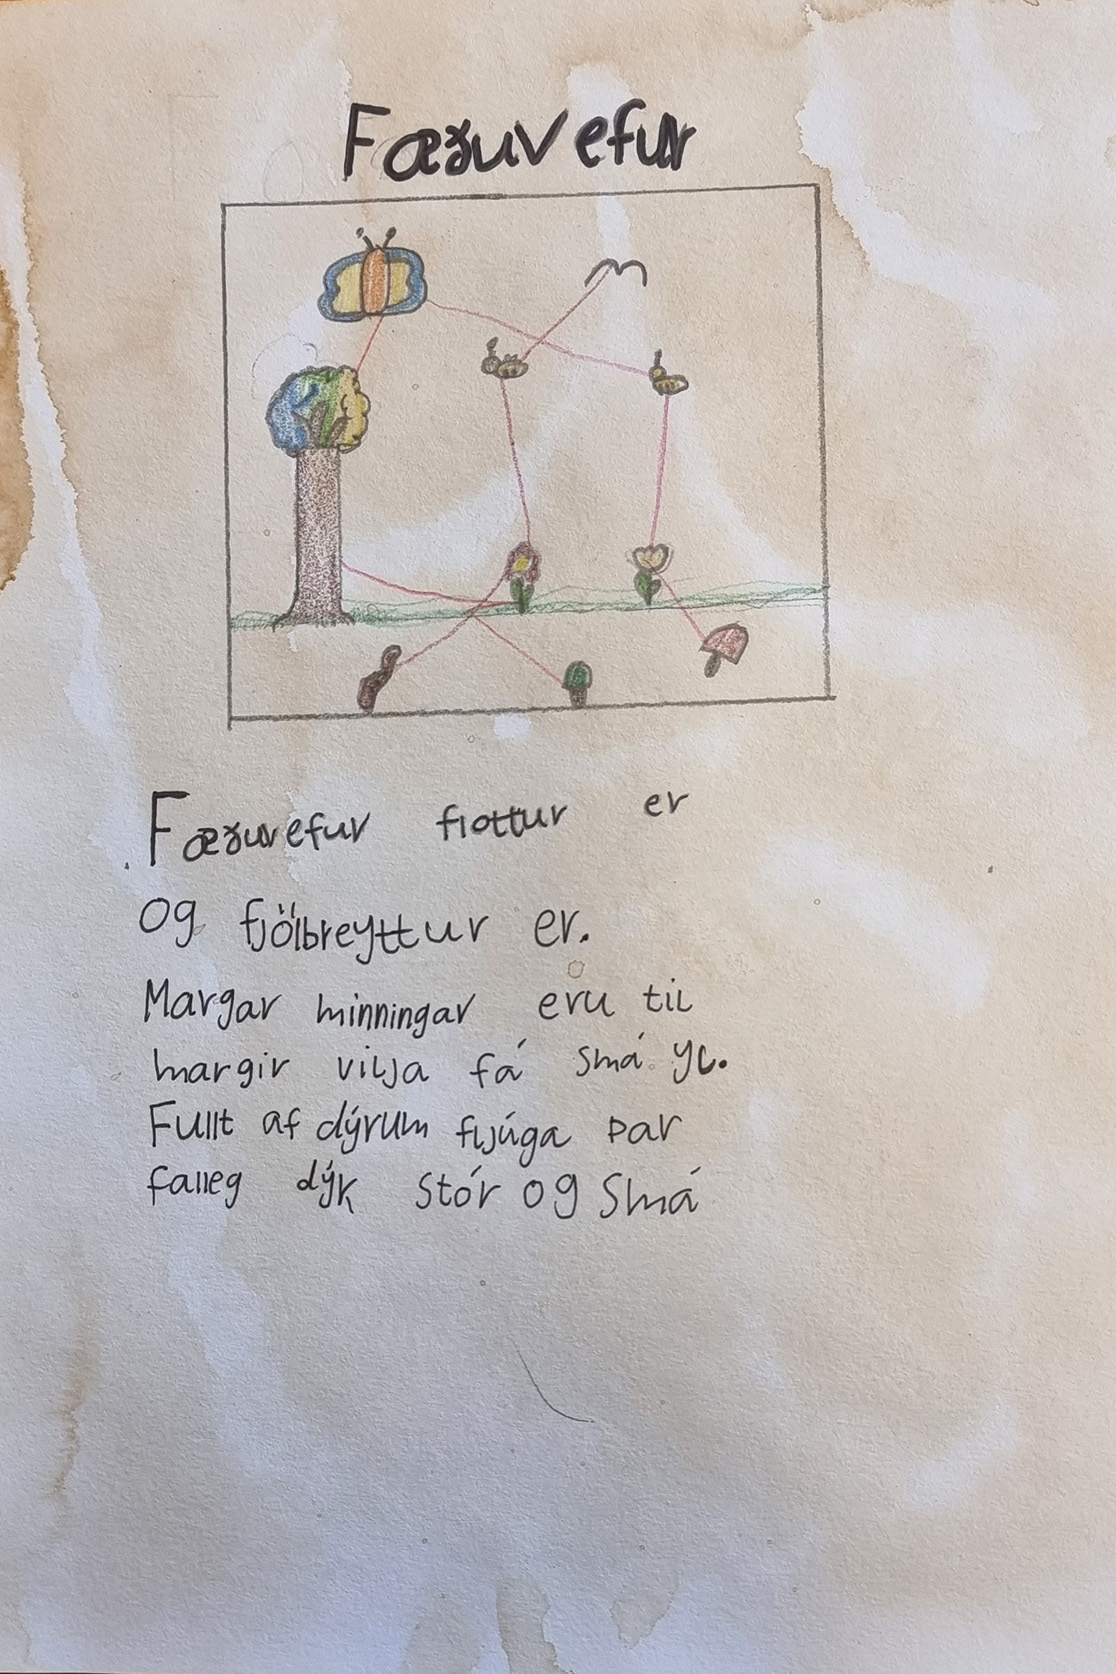 Fæðuvefur
Fæðuvefur flottur er
og fjölbreyttur er.
Margar minningar eru til
margir vilja fá smá yl.
Fullt af dýrum fljúga þar
falleg dýr stór og Smá